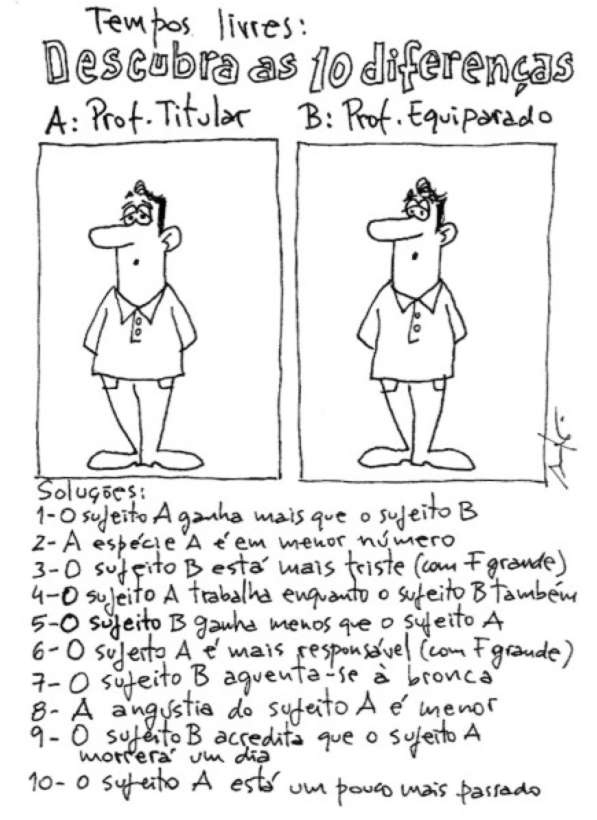 Tempos livres:
Descubra as 10 diferenças
A: Prof. Titular
B: Prof. Equiparado
Soluções:
1- O sujeito A ganha mais que o sujeito B
2- A espécie A é em menor número
3- O sujeito B está mais triste (com T grande)
4- O sujeito A trabalha enquanto o sujeito B também
5- O sujeito B ganha menos que o sujeito A
6- O sujeito A é mais responsável (com F grande)
7- O sujeito B aguenta-se à bronca
8- A angústia do sujeito A é menor
9- O sujeito B acredita que o sujeito A
morrerá um dia
10- O sujeito A está um pouco mais passado